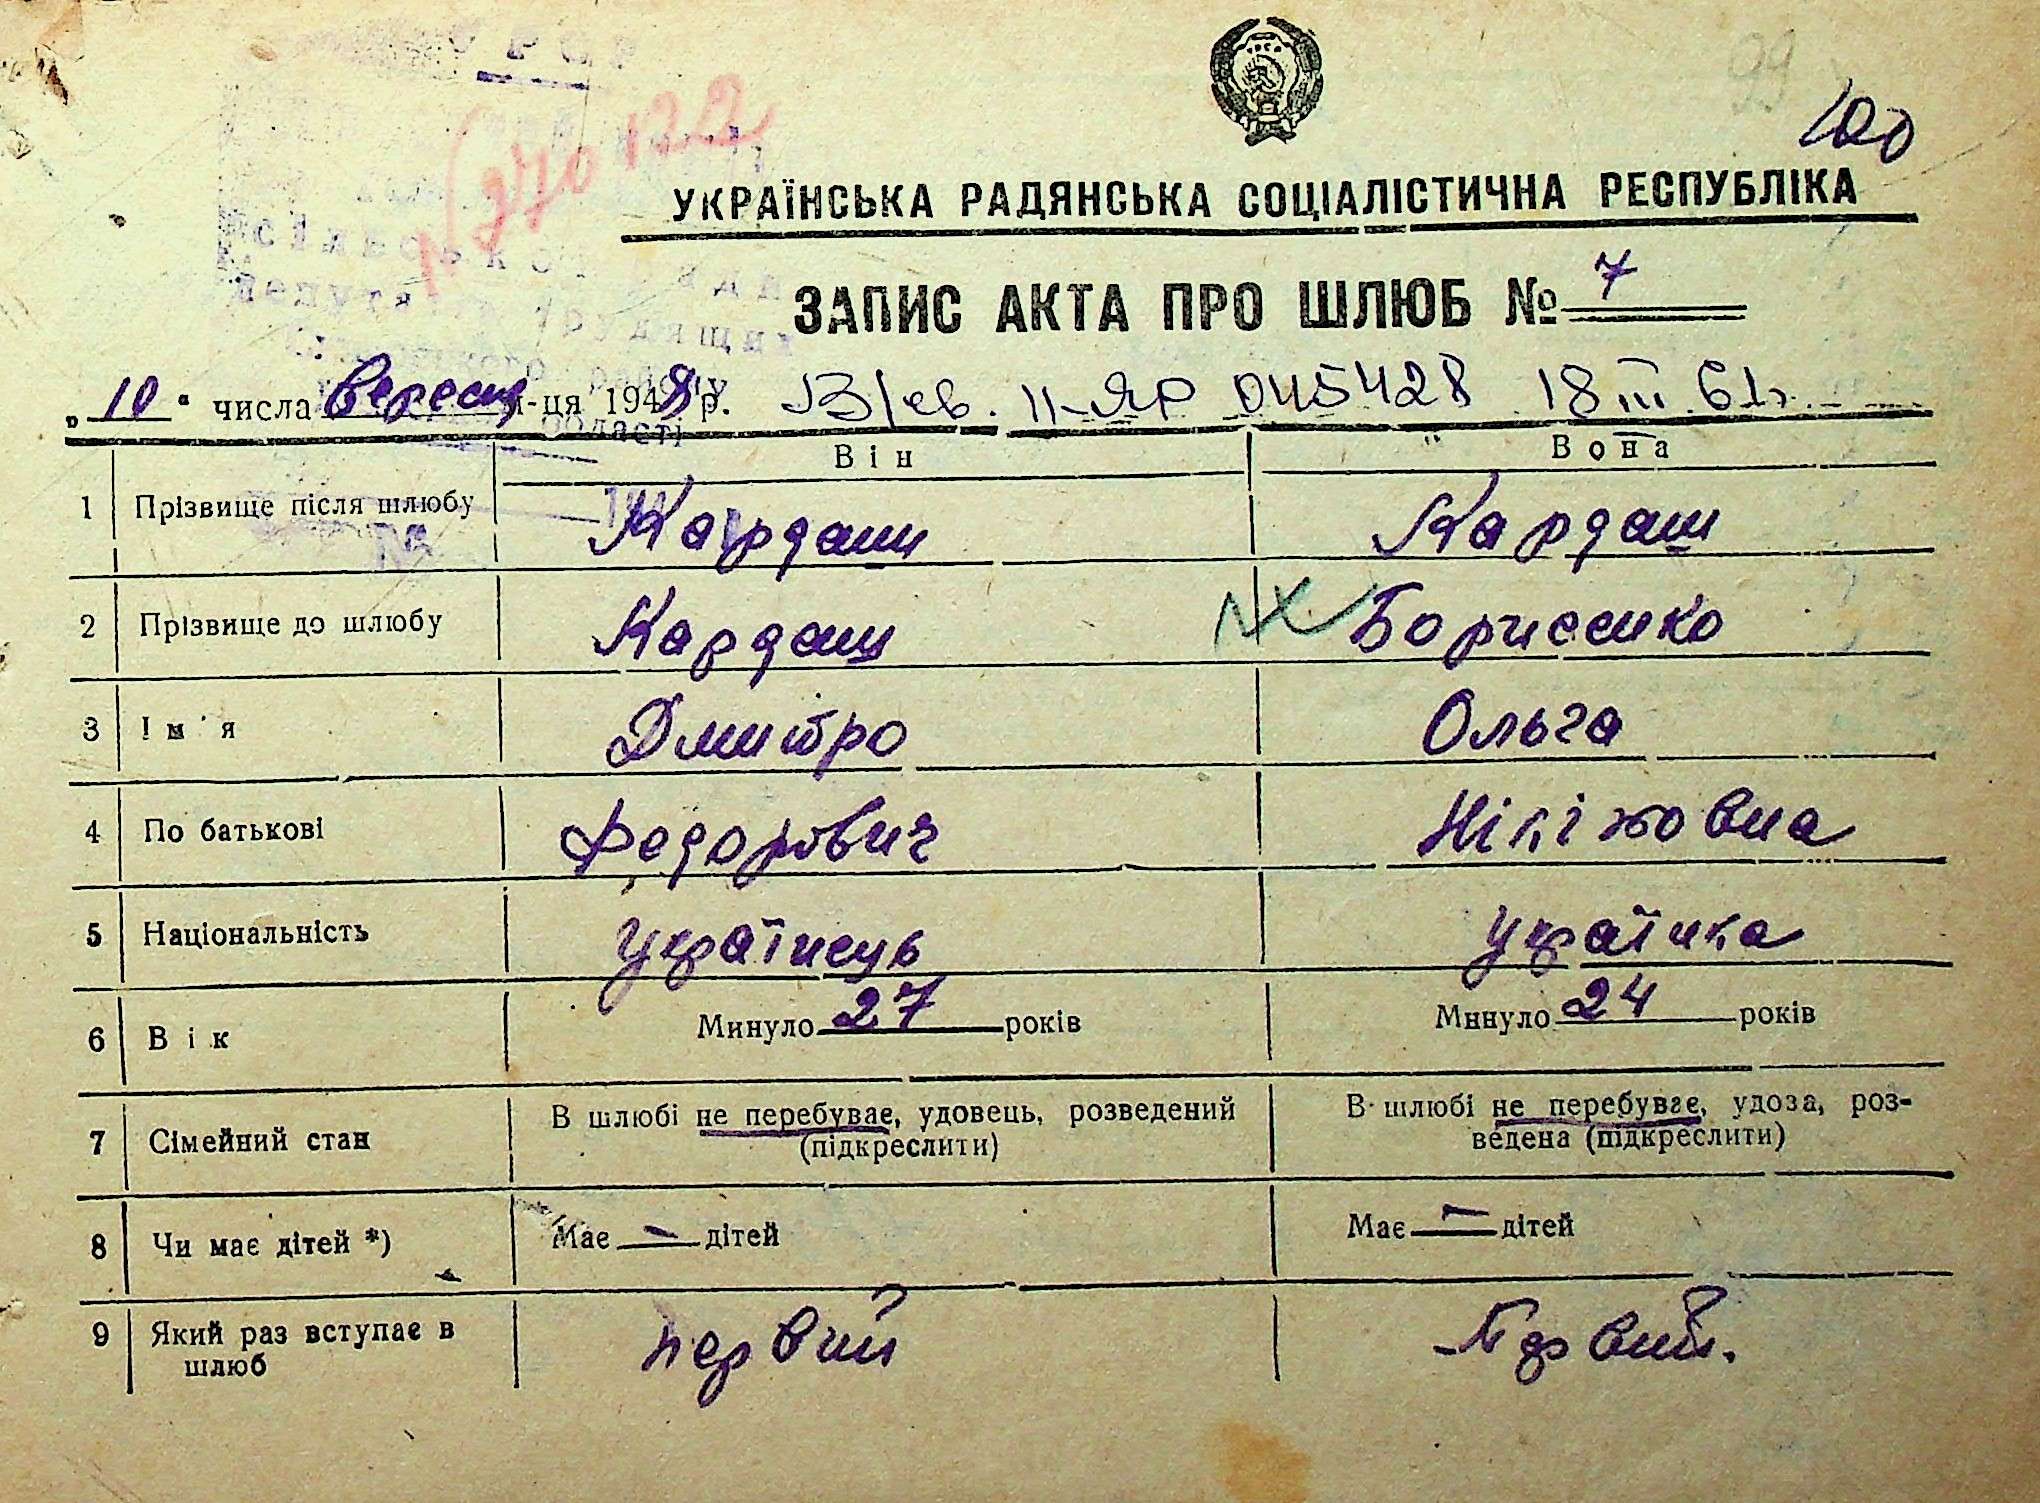 99
100
270122
УКРАЇНСЬКА РАДЯНСЬКА СОЦІАЛІСТИЧНА РЕСПУБЛІКА
сільської ради
депутатів трудящих
району
області
ЗАПИС АКТА ПРО ШЛЮБ № 7
„10“ числа Вересня м-ця 1948 р. II-ЯР 045428 18 III 61г.
Він Вона
1 Прізвище після шлюбу Кардаш Кардаш
2 Прізвище до шлюбу Кардаш Борисенко
3 Ім'я Дмитро Ольга
4 По батькові Федорович Нікіповна
5 Національність Українець Українка
6 Вік Минуло 27 років Минуло 24 років
7 Сімейний стан В шлюбі не перебуває, удовець, розведений В шлюбі не перебуває, удова, роз-
(підкреслити) ведена (підкреслити)
8 Чи має дітей *) Має – дітей Має – дітей
9 Який раз вступає в первий Первий.
шлюб